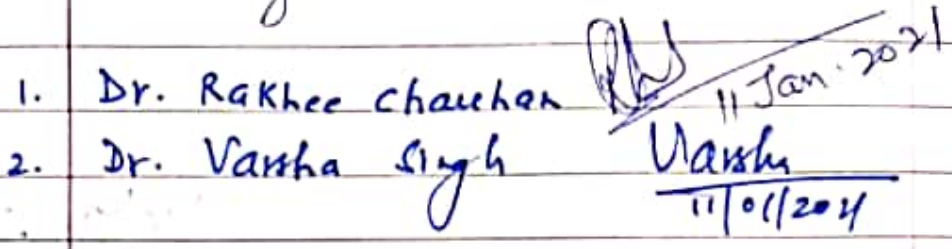 1. Dr. Rakhee Chauhan 11 Jan. 2021
2. Dr. Varsha Singh Varsha
11/01/2021